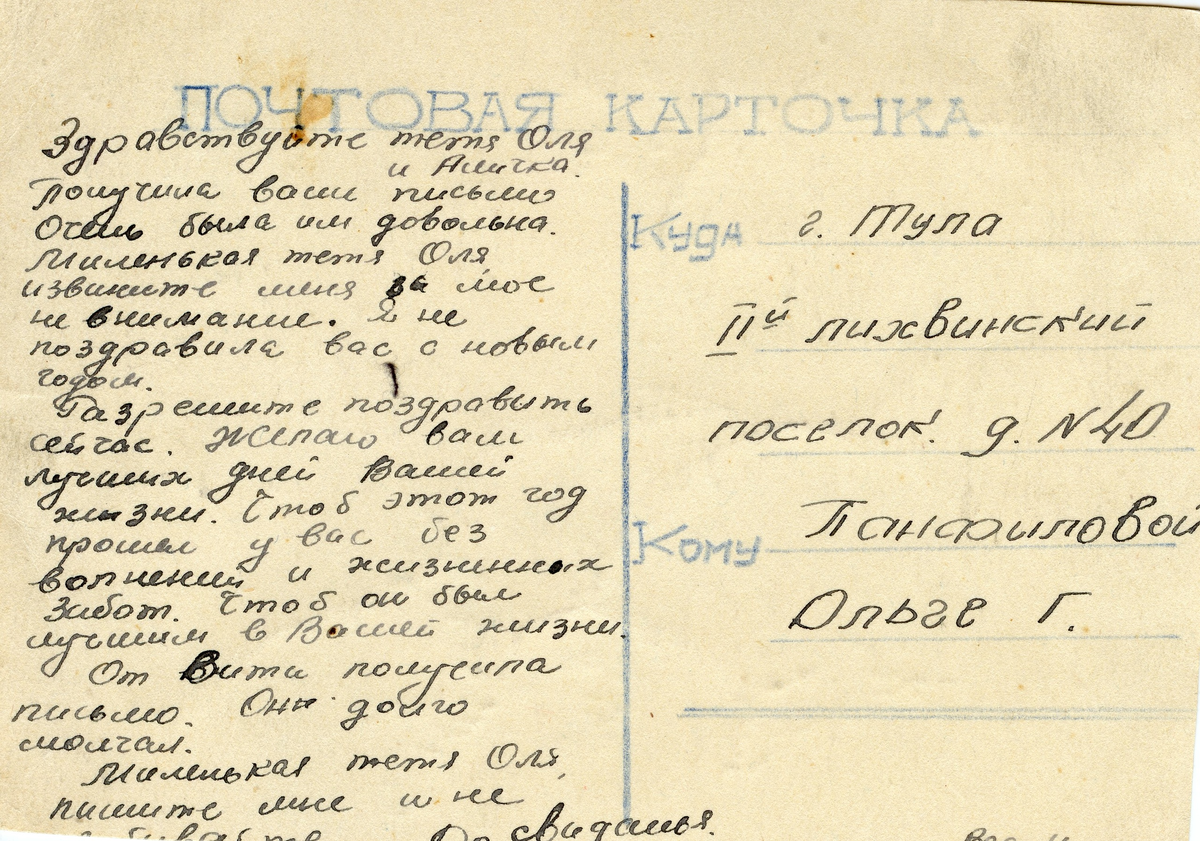 ПОЧТОВАЯ КАРТОЧКА
Здравствуйте тетя Оля
и Аличка.
Получила ваши письмо
Очень была им довольна.
Миленькая тетя Оля
извините меня за мое
не внимание. Я не
поздравила вас с новым
годом.
Разрешите поздравить
сейчас. Желаю вам
лучших дней Вашей
жизни. Чтоб этот год
прошел у вас без
волнений и жизненных
забот. Чтоб он был
лучшим в Вашей жизни.
От Вити получила
письмо. Он долго
молчал.
Миленькая тетя Оля,
пишите мне и не
До свиданья.
Куда г. Тула
IIй лихвинский
поселок. д. N 40
Кому Панфиловой
Ольге Г.